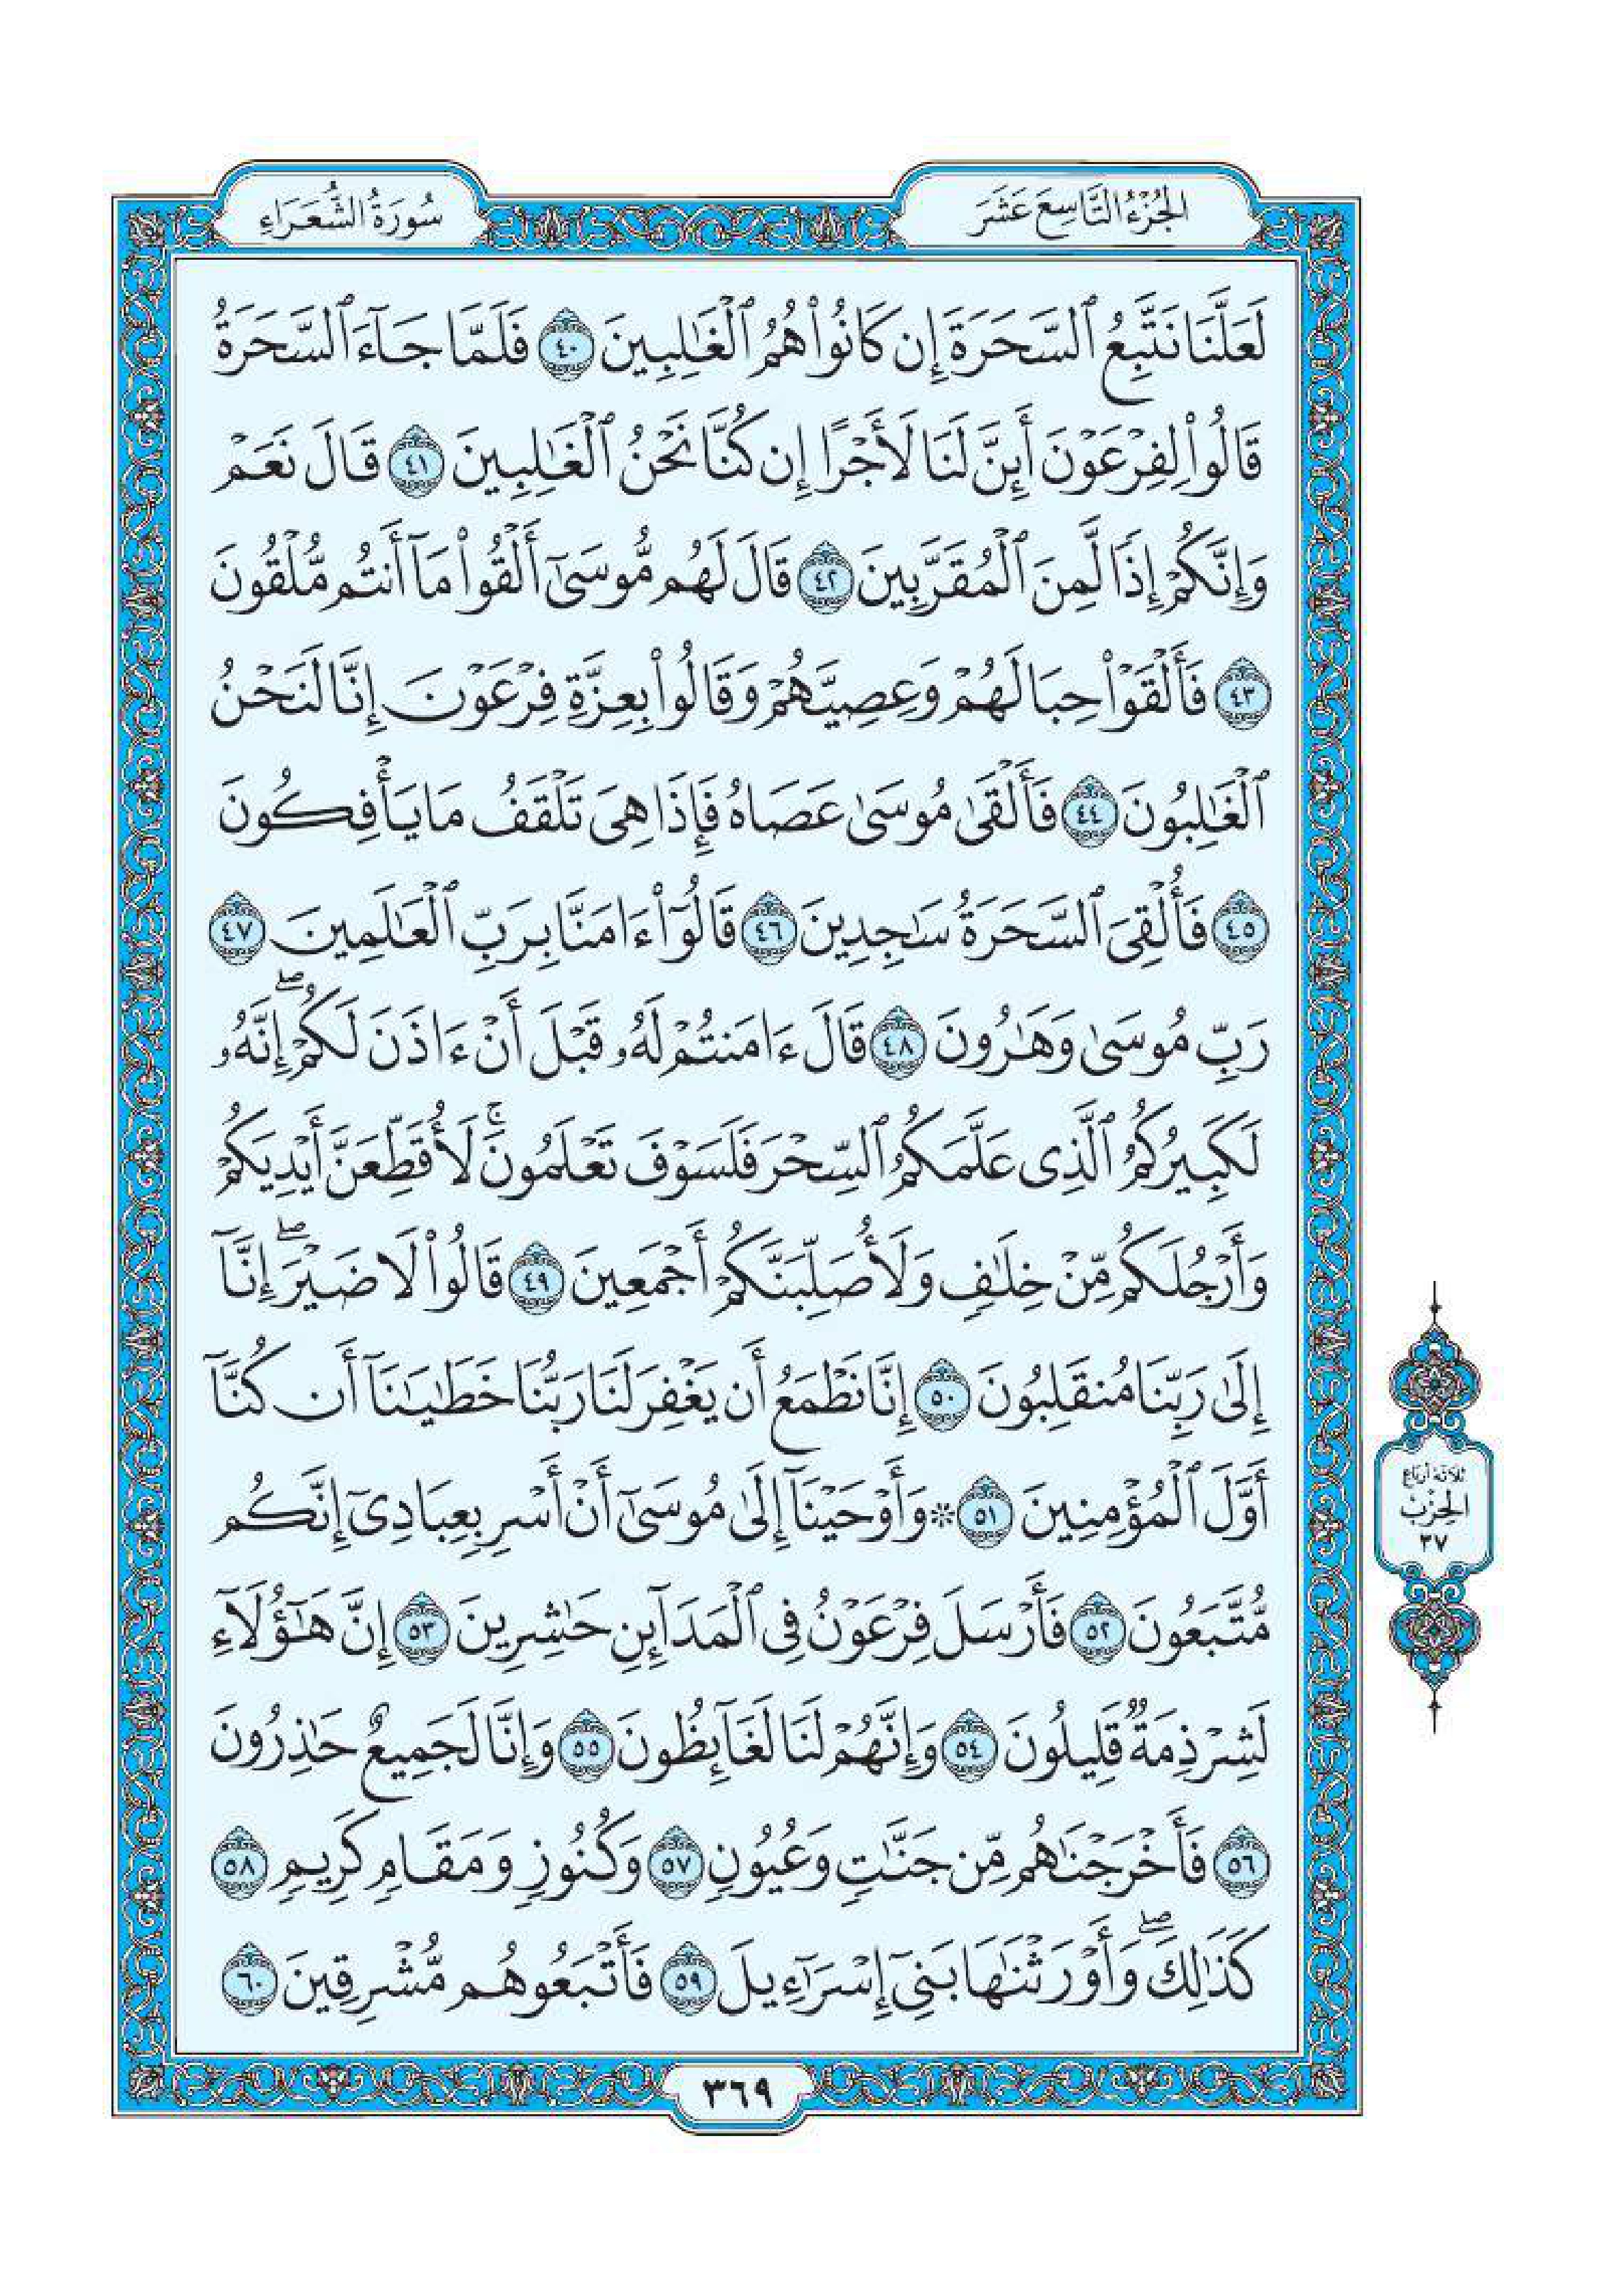 الجُزْءُ التَّاسِعَ عَشَرَ
سُورَةُ الشُّعَرَاءِ
لَعَلَّنَا نَتَّبِعُ ٱلسَّحَرَةَ إِن كَانُوا۟ هُمُ ٱلْغَـٰلِبِينَ ٤٠ فَلَمَّا جَآءَ ٱلسَّحَرَةُ
قَالُوا۟ لِفِرْعَوْنَ أَئِنَّ لَنَا لَأَجْرًا إِن كُنَّا نَحْنُ ٱلْغَـٰلِبِينَ ٤١ قَالَ نَعَمْ
وَإِنَّكُمْ إِذًا لَّمِنَ ٱلْمُقَرَّبِينَ ٤٢ قَالَ لَهُم مُّوسَىٰٓ أَلْقُوا۟ مَآ أَنتُم مُّلْقُونَ
٤٣ فَأَلْقَوْا۟ حِبَالَهُمْ وَعِصِيَّهُمْ وَقَالُوا۟ بِعِزَّةِ فِرْعَوْنَ إِنَّا لَنَحْنُ
ٱلْغَـٰلِبُونَ ٤٤ فَأَلْقَىٰ مُوسَىٰ عَصَاهُ فَإِذَا هِىَ تَلْقَفُ مَا يَأْفِكُونَ
٤٥ فَأُلْقِىَ ٱلسَّحَرَةُ سَـٰجِدِينَ ٤٦ قَالُوٓا۟ ءَامَنَّا بِرَبِّ ٱلْعَـٰلَمِينَ ٤٧
رَبِّ مُوسَىٰ وَهَـٰرُونَ ٤٨ قَالَ ءَامَنتُمْ لَهُۥ قَبْلَ أَنْ ءَاذَنَ لَكُمْ ۖ إِنَّهُۥ
لَكَبِيرُكُمُ ٱلَّذِى عَلَّمَكُمُ ٱلسِّحْرَ فَلَسَوْفَ تَعْلَمُونَ ۚ لَأُقَطِّعَنَّ أَيْدِيَكُمْ
وَأَرْجُلَكُم مِّنْ خِلَـٰفٍ وَلَأُصَلِّبَنَّكُمْ أَجْمَعِينَ ٤٩ قَالُوا۟ لَا ضَيْرَ ۖ إِنَّآ
إِلَىٰ رَبِّنَا مُنقَلِبُونَ ٥٠ إِنَّا نَطْمَعُ أَن يَغْفِرَ لَنَا رَبُّنَا خَطَـٰيَـٰنَآ أَن كُنَّآ
أَوَّلَ ٱلْمُؤْمِنِينَ ٥١ * وَأَوْحَيْنَآ إِلَىٰ مُوسَىٰٓ أَنْ أَسْرِ بِعِبَادِىٓ إِنَّكُم
مُّتَّبَعُونَ ٥٢ فَأَرْسَلَ فِرْعَوْنُ فِى ٱلْمَدَآئِنِ حَـٰشِرِينَ ٥٣ إِنَّ هَـٰٓؤُلَآءِ
لَشِرْذِمَةٌ قَلِيلُونَ ٥٤ وَإِنَّهُمْ لَنَا لَغَآئِظُونَ ٥٥ وَإِنَّا لَجَمِيعٌ حَـٰذِرُونَ
٥٦ فَأَخْرَجْنَـٰهُم مِّن جَنَّـٰتٍ وَعُيُونٍ ٥٧ وَكُنُوزٍ وَمَقَامٍ كَرِيمٍ ٥٨
كَذَٰلِكَ ۖ وَأَوْرَثْنَـٰهَا بَنِىٓ إِسْرَٰٓءِيلَ ٥٩ فَأَتْبَعُوهُم مُّشْرِقِينَ ٦٠
ثَلَاثَةُ أَرْبَاعِ
الحِزْبُ
٣٧
٣٦٩